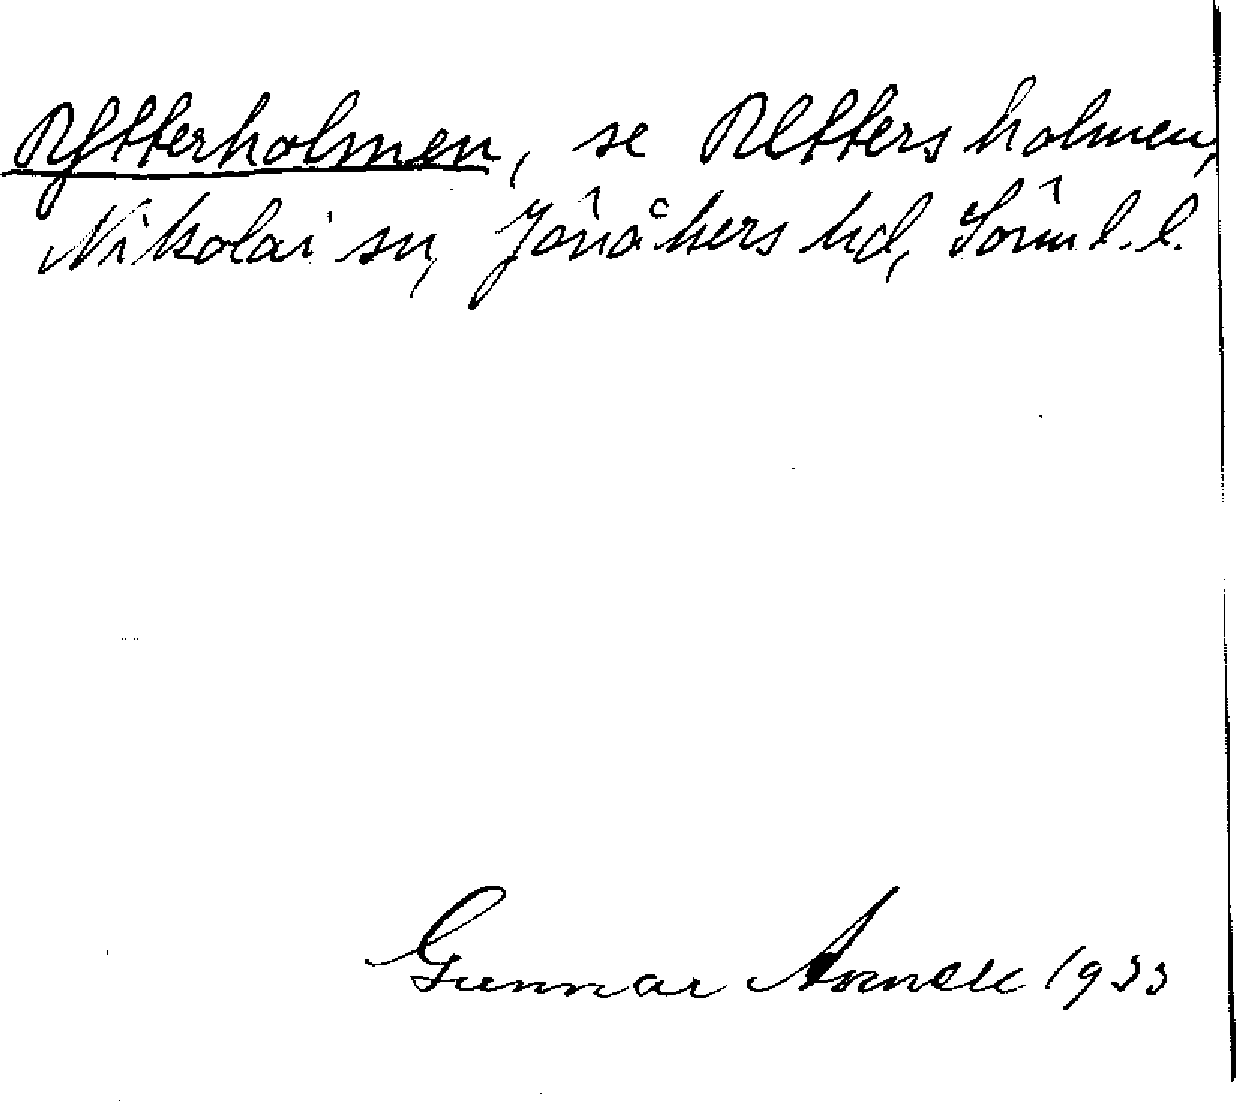 Rytterholmen, se Rettersholmen,
Nikolai sn, Jönåkers hd, Sörm l. l.
Gunnar 1933